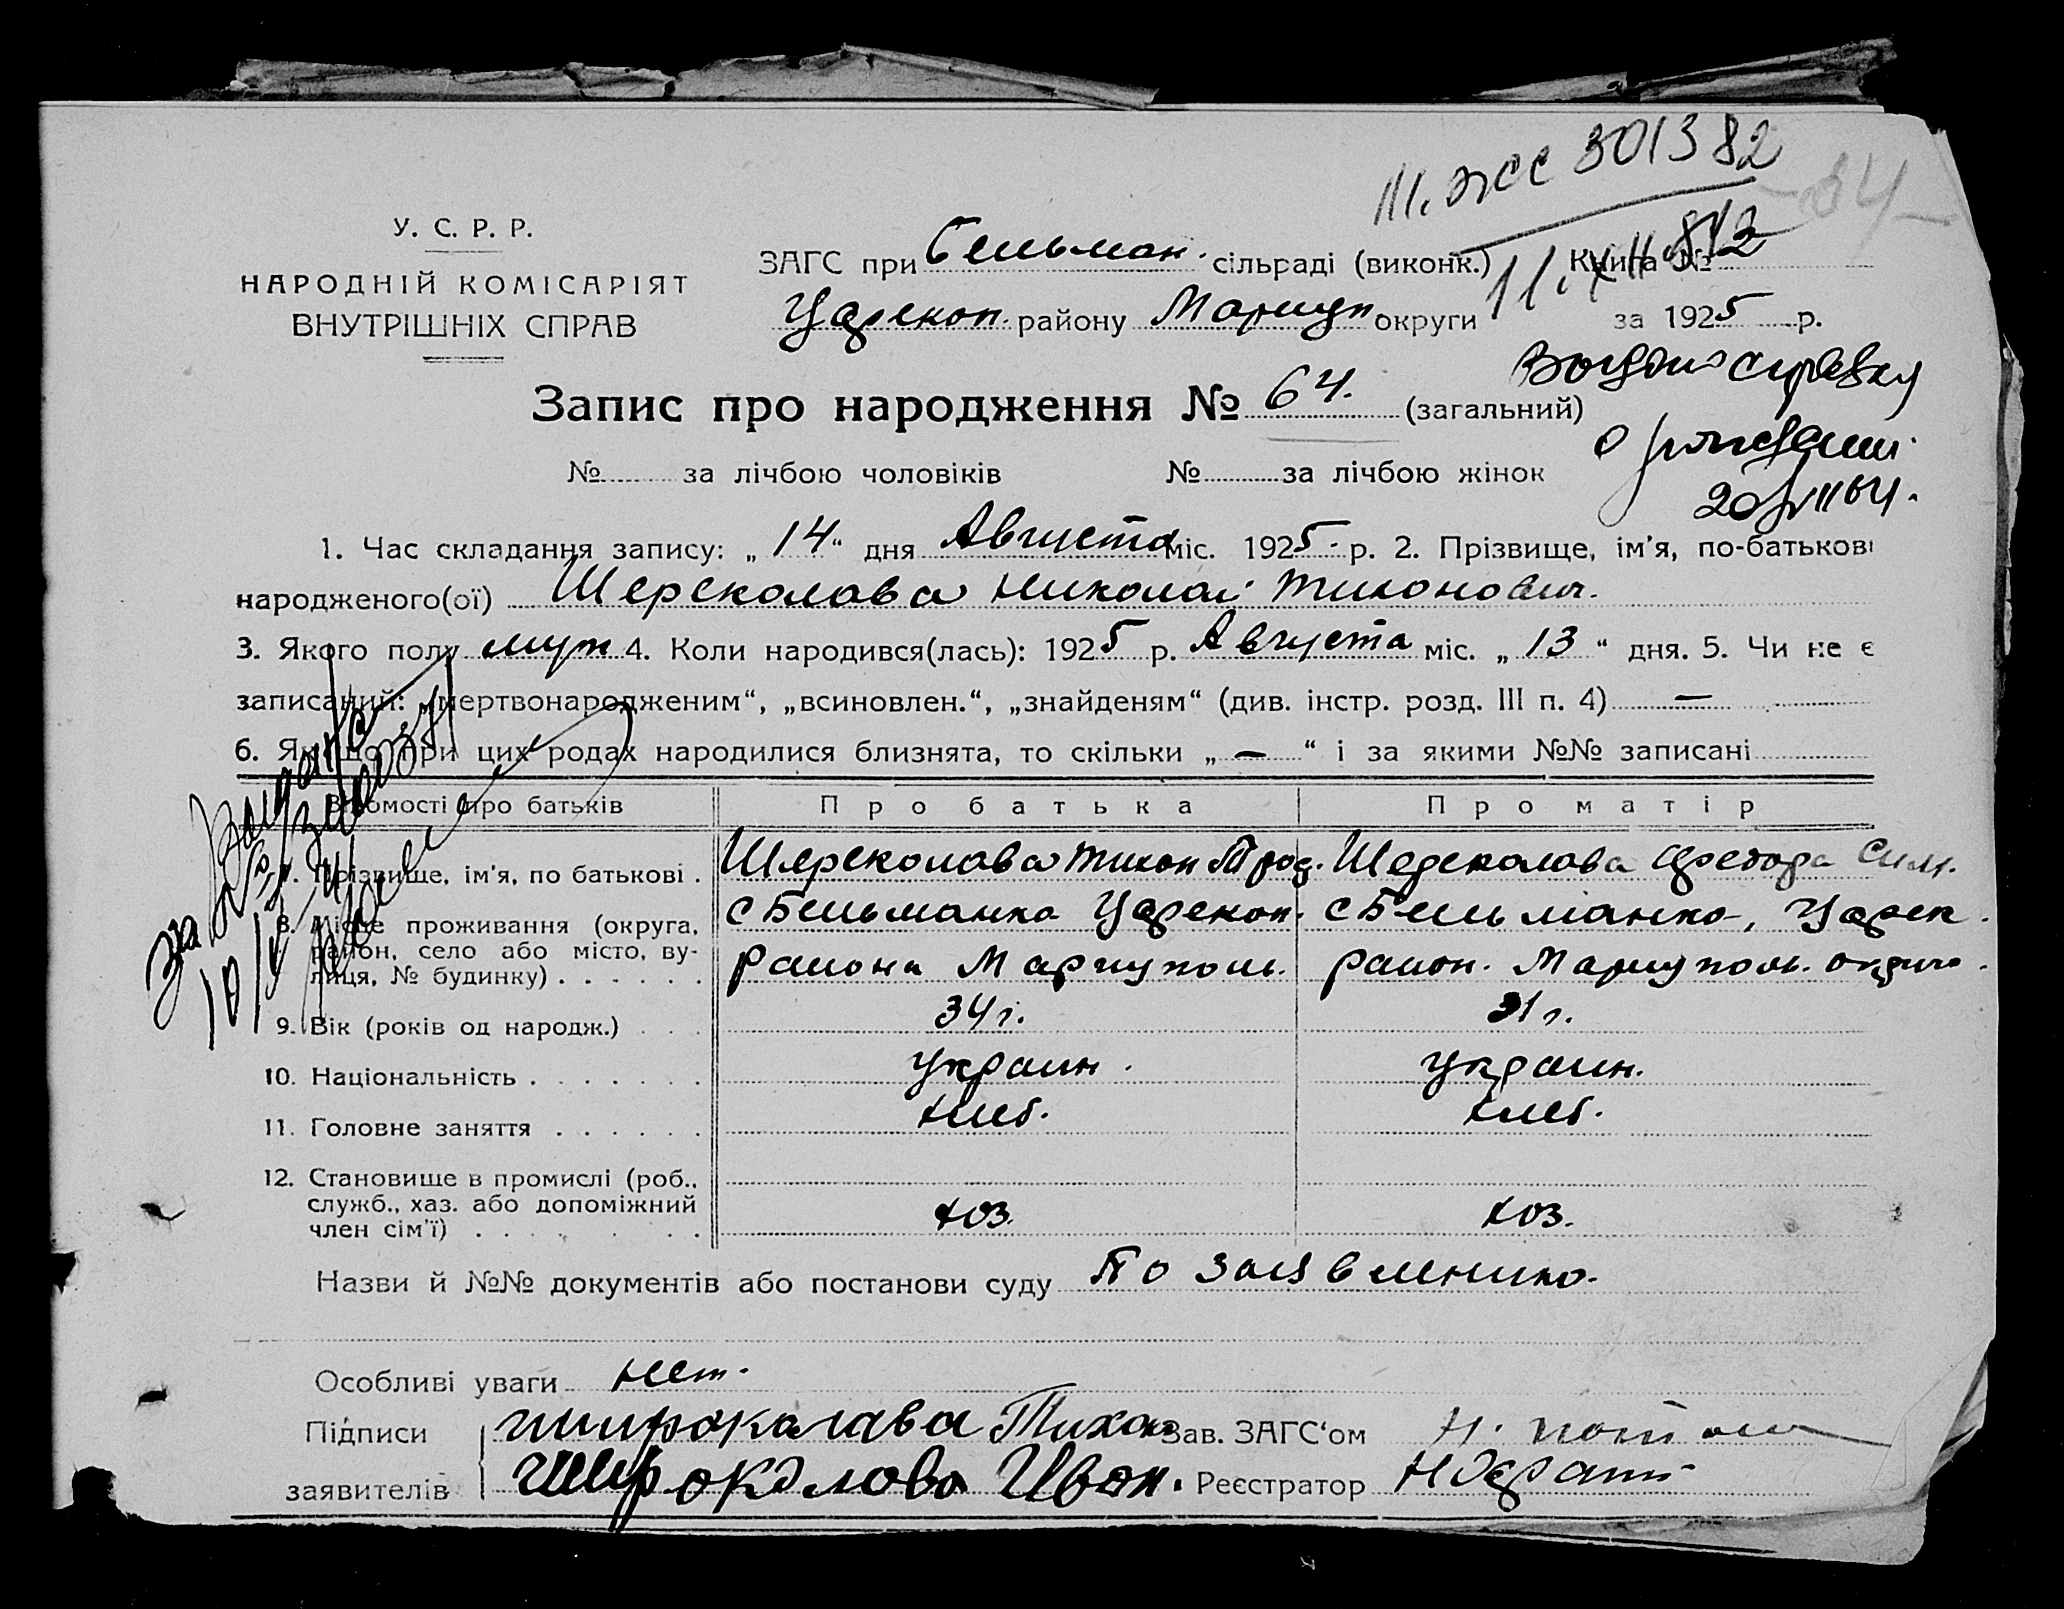 III. ЖСС 301382
-34-
У. С. Р. Р.
НАРОДНІЙ КОМІСАРІЯТ
ВНУТРІШНІХ СПРАВ
ЗАГС при Бельман. сільраді (виконк.) Книга №
Царекон. району Мариуп округи за 1925 р.
Запис про народження № 64. (загальний)
о рождении
№ за лічбою чоловіків № за лічбою жінок
1. Час складання запису: „14“ дня Августа міс. 1925 р. 2. Прізвище, ім'я, по-батькові
народженого(ої) Шереколава Николай Тихонович.
3. Якого полу муж 4. Коли народився(лась): 1925 р. Августа міс. „13“ дня. 5. Чи не є
записаний: „мертвонародженим“, „всиновлен.“, „знайденям“ (див. інстр. розд. III п. 4) —
6. Якщо при цих родах народилися близнята, то скільки „—“ і за якими №№ записані
Відомості про батьків Про батька Про матір
7. Прізвище, ім'я, по батькові . Шереколава Тихон Шереколава Федора Сим.
8. Місце проживання (округа, с Бельманка Царекон. с Бельманка, Царек.
район, село або місто, ву-
лиця, № будинку) . . . . . . Района Мариуполь. район. Мариуполь. округа.
9. Вік (років од народж.) . . . 34 г. 31 г.
10. Національність . . . . . . . украин. украин.
11. Головне заняття . . . . . . хлеб. хлеб.
12. Становище в промислі (роб.,
служб., хаз. або допоміжний
член сім'ї) . . . . . . . хоз. хоз.
Назви й №№ документів або постанови суду По заявлению.
Особливі уваги нет.
Підписи широкалава Тихон Зав. ЗАГС'ом
заявителів Широколова Иван. Реєстратор